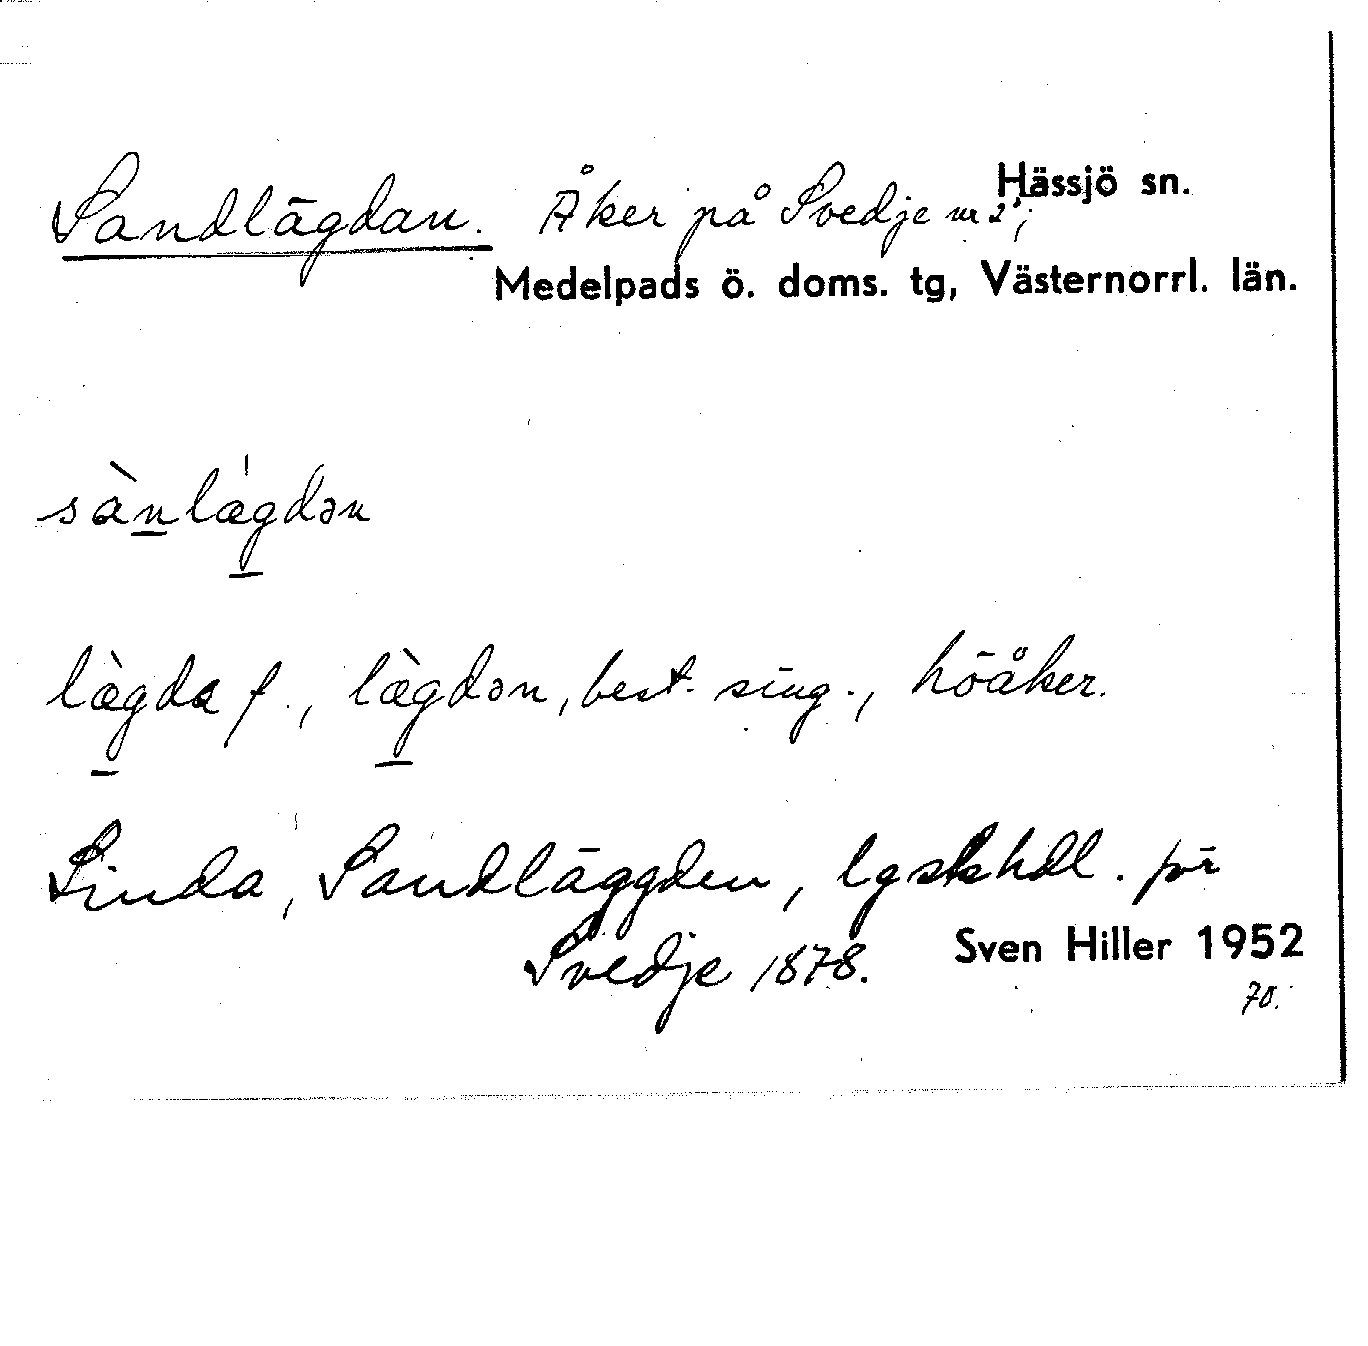 Sandlägdan. Åker på Svedje nr 2¹; Hässjö sn.
Medelpads ö. doms. tg, Västernorrl. län.
sànlægdən
lægda f., lægdən, best. sing., höåker.
Linda, Sandläggden, lgskhdl. för
Svedje 1878. Sven Hiller 1952
70.